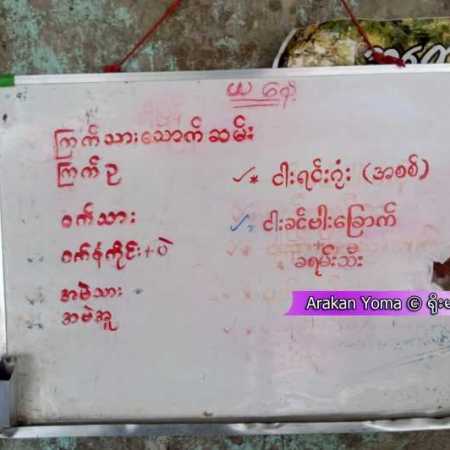 ယနေ့
ကြက်သားသောက်ဆမ်း
ကြက်ဥ
ဝက်သား
ဝက်နံကိုင်း+ပဲ
အမဲသား
အမဲအူ
ငါးရင်းဂုံး (အစစ်)
ငါးခင်ဗါးခြောက်
ခရမ်းသီး
Arakan Yoma ©